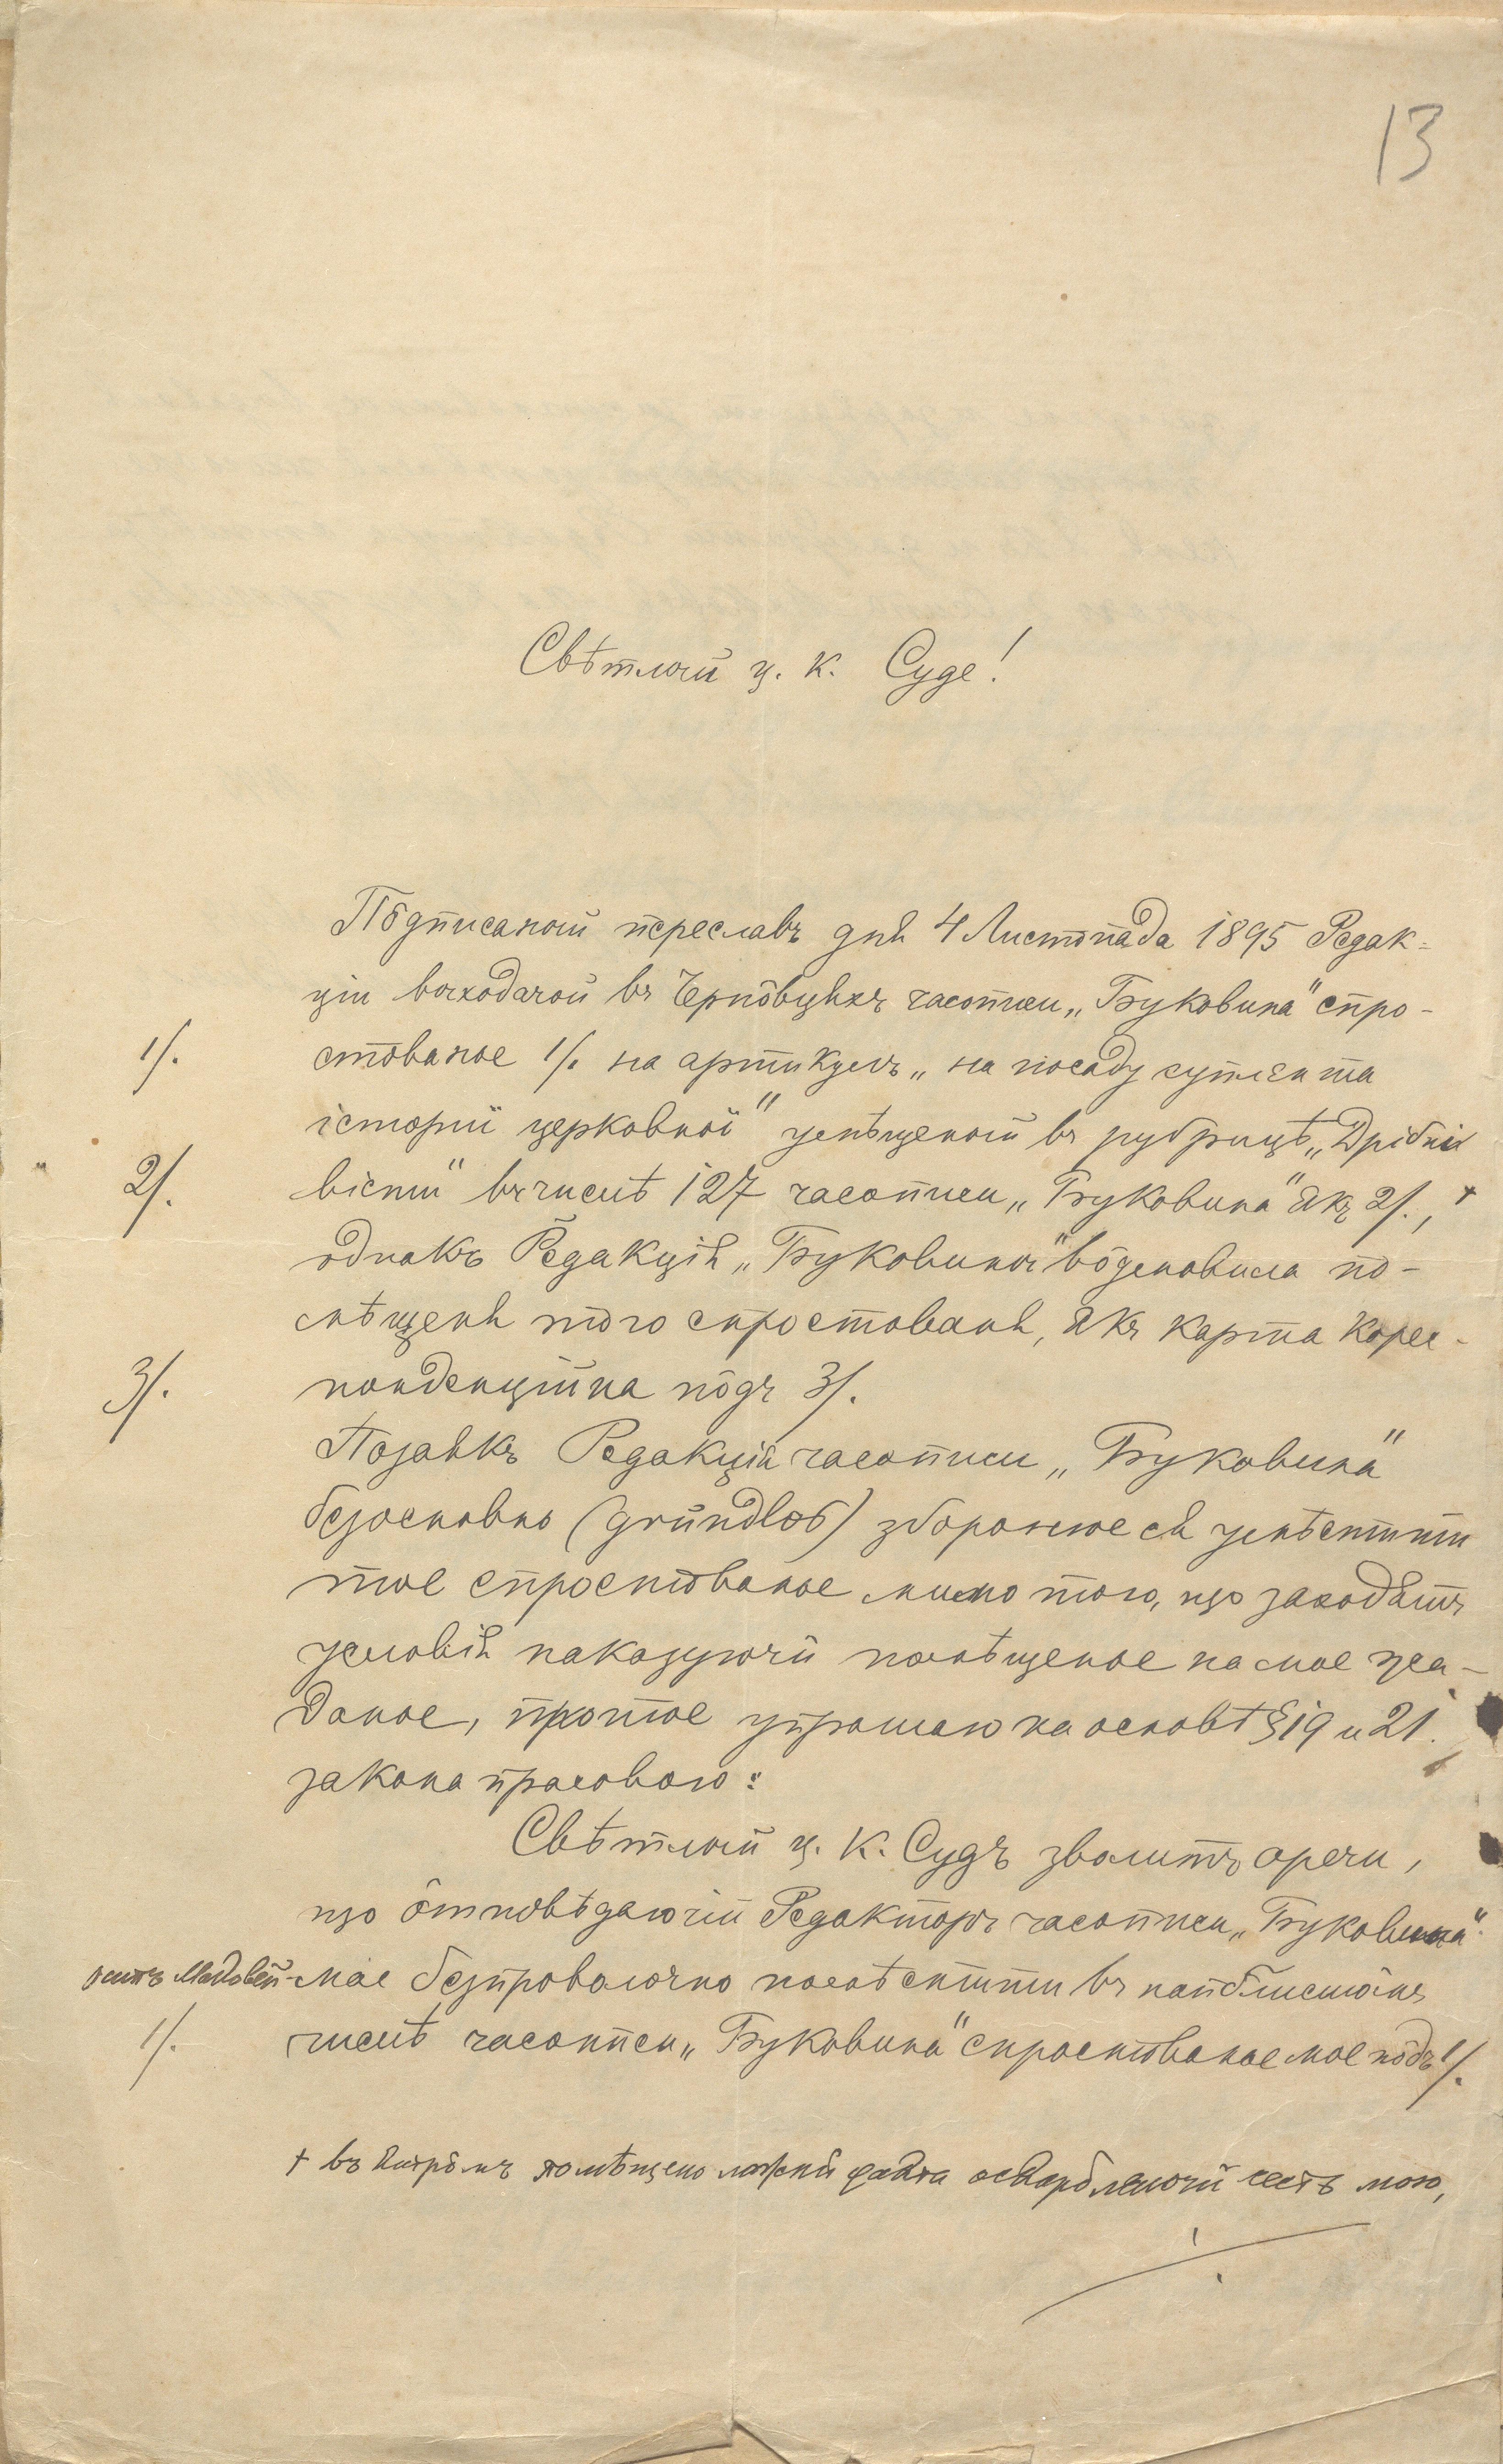 13
Свѣтлый ц. к. Суде!
Пôдписаный переславъ дня 4 Листопада 1895 Редак-
ціи выходячой въ Чернôвцяхъ часописи „Буковина" спро-
1/. стованое 1/. на артикулъ „на посаду суплента
історії церковної" умѣщеный въ рубрицѣ „Дрібні
2/. вісти" въ числѣ 127 часописи „Буковина" якъ 2/., †
однакъ Редакція „Буковины" вôдмовила по-
мѣщеня того спростованя, якъ карта корес-
3/. понденційна пôдъ 3/.
Позаякъ Редакція часописи „Буковина"
безосновно (grundlos) збороняе ся умѣстити
тое спростованое мимо того, що заходятъ
условія наказуючи помѣщеное на мое жа-
даное, протое упрошаю на основѣ § 19 и 21.
закона прасового:
Свѣтлый ц. к. Судъ зволитъ оречи,
що ôтповѣдаючій Редакторъ часописи „Буковина"
Осипъ Маковей мае безпроволочно помѣстити въ найблисшôмъ
1/. числѣ часописи „Буковина" спростованое мое пôдъ 1/.
† въ котрôмъ помѣщено ложній факта оскорбляючій честь мою,